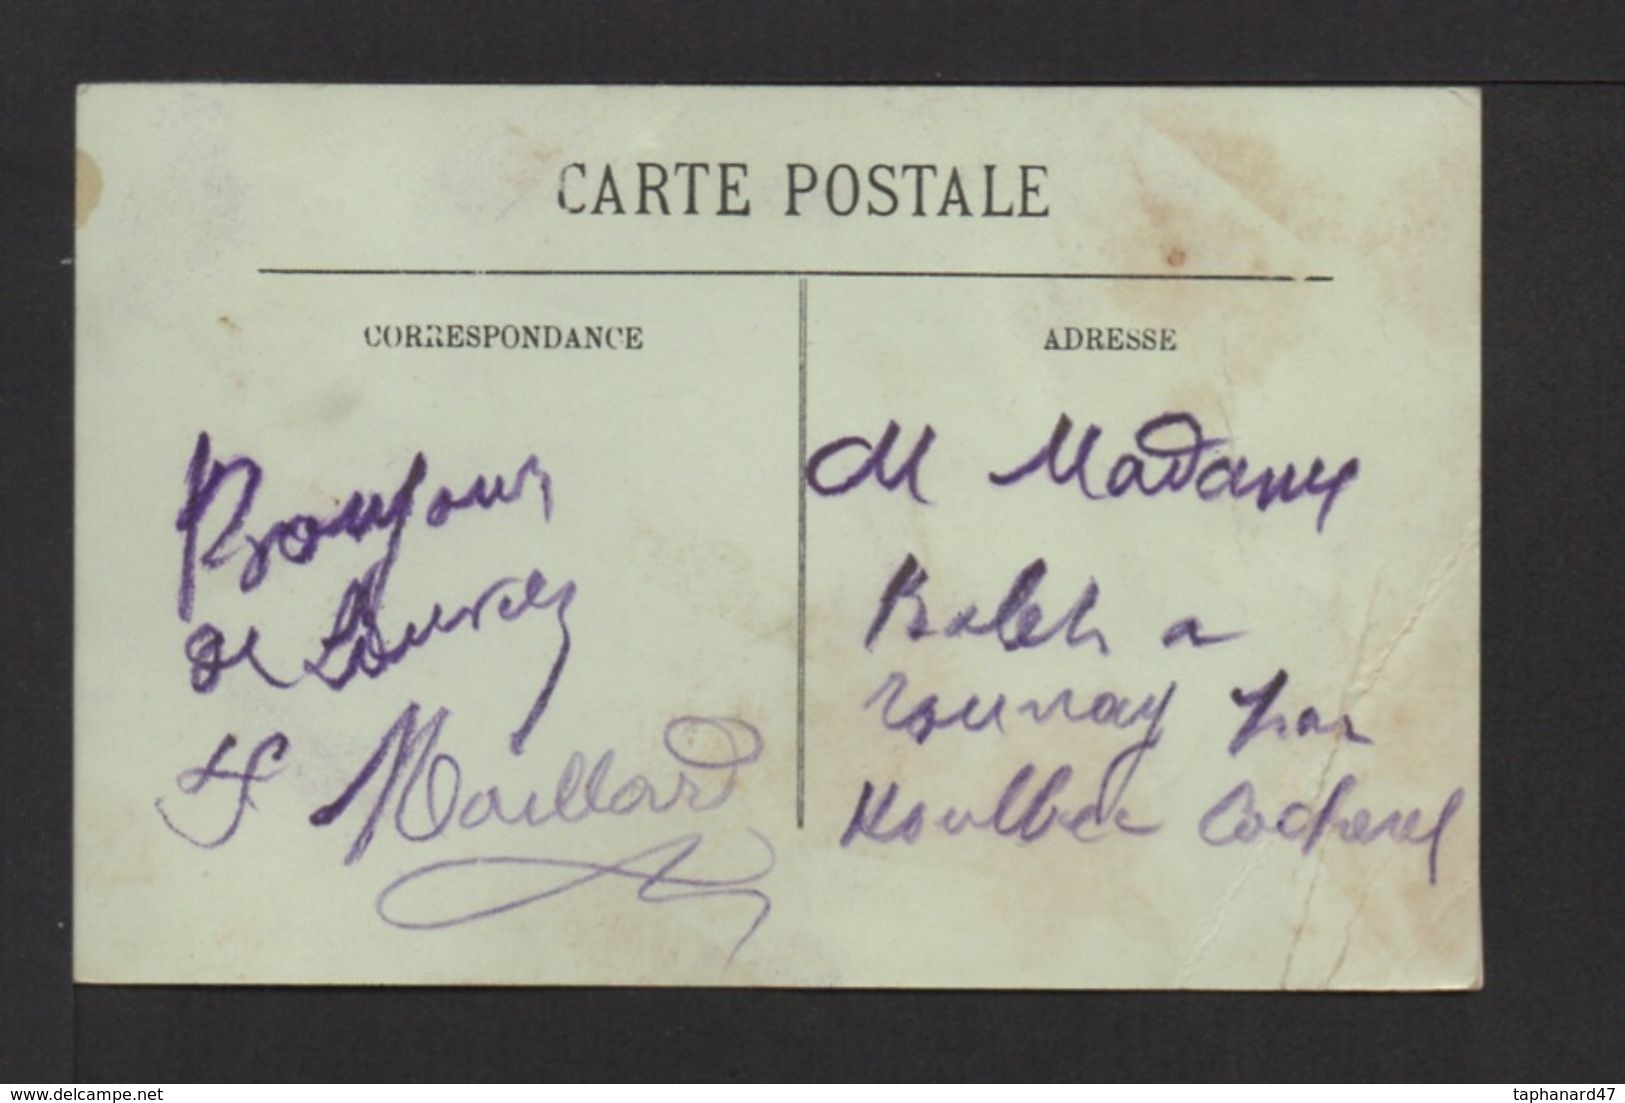 CARTE POSTALE
CORRESPONDANCE
ADRESSE
Bonjour
de
Maillard
M Madame
a
par
Houlbec Cocherel
www.delcampe.net
taphanard47